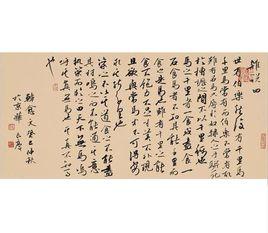 雜說四
世有伯樂然後有千里馬
千里馬常有而伯樂不常有故
雖有名馬祇辱於奴隸人之手駢死
於槽櫪之間不以千里稱也
馬之千里者一食或盡粟一
石食馬者不知其能千里而
食也是馬也雖有千里之能
食不飽力不足才美不外現
且欲與常馬等不可得安
求其能千里也
策之不以其道食之不能盡
其材鳴之而不能通其意
執策而臨之曰天下無馬嗚
呼其真無馬邪其真不知馬
也
韓愈文 癸巳仲秋
於京華